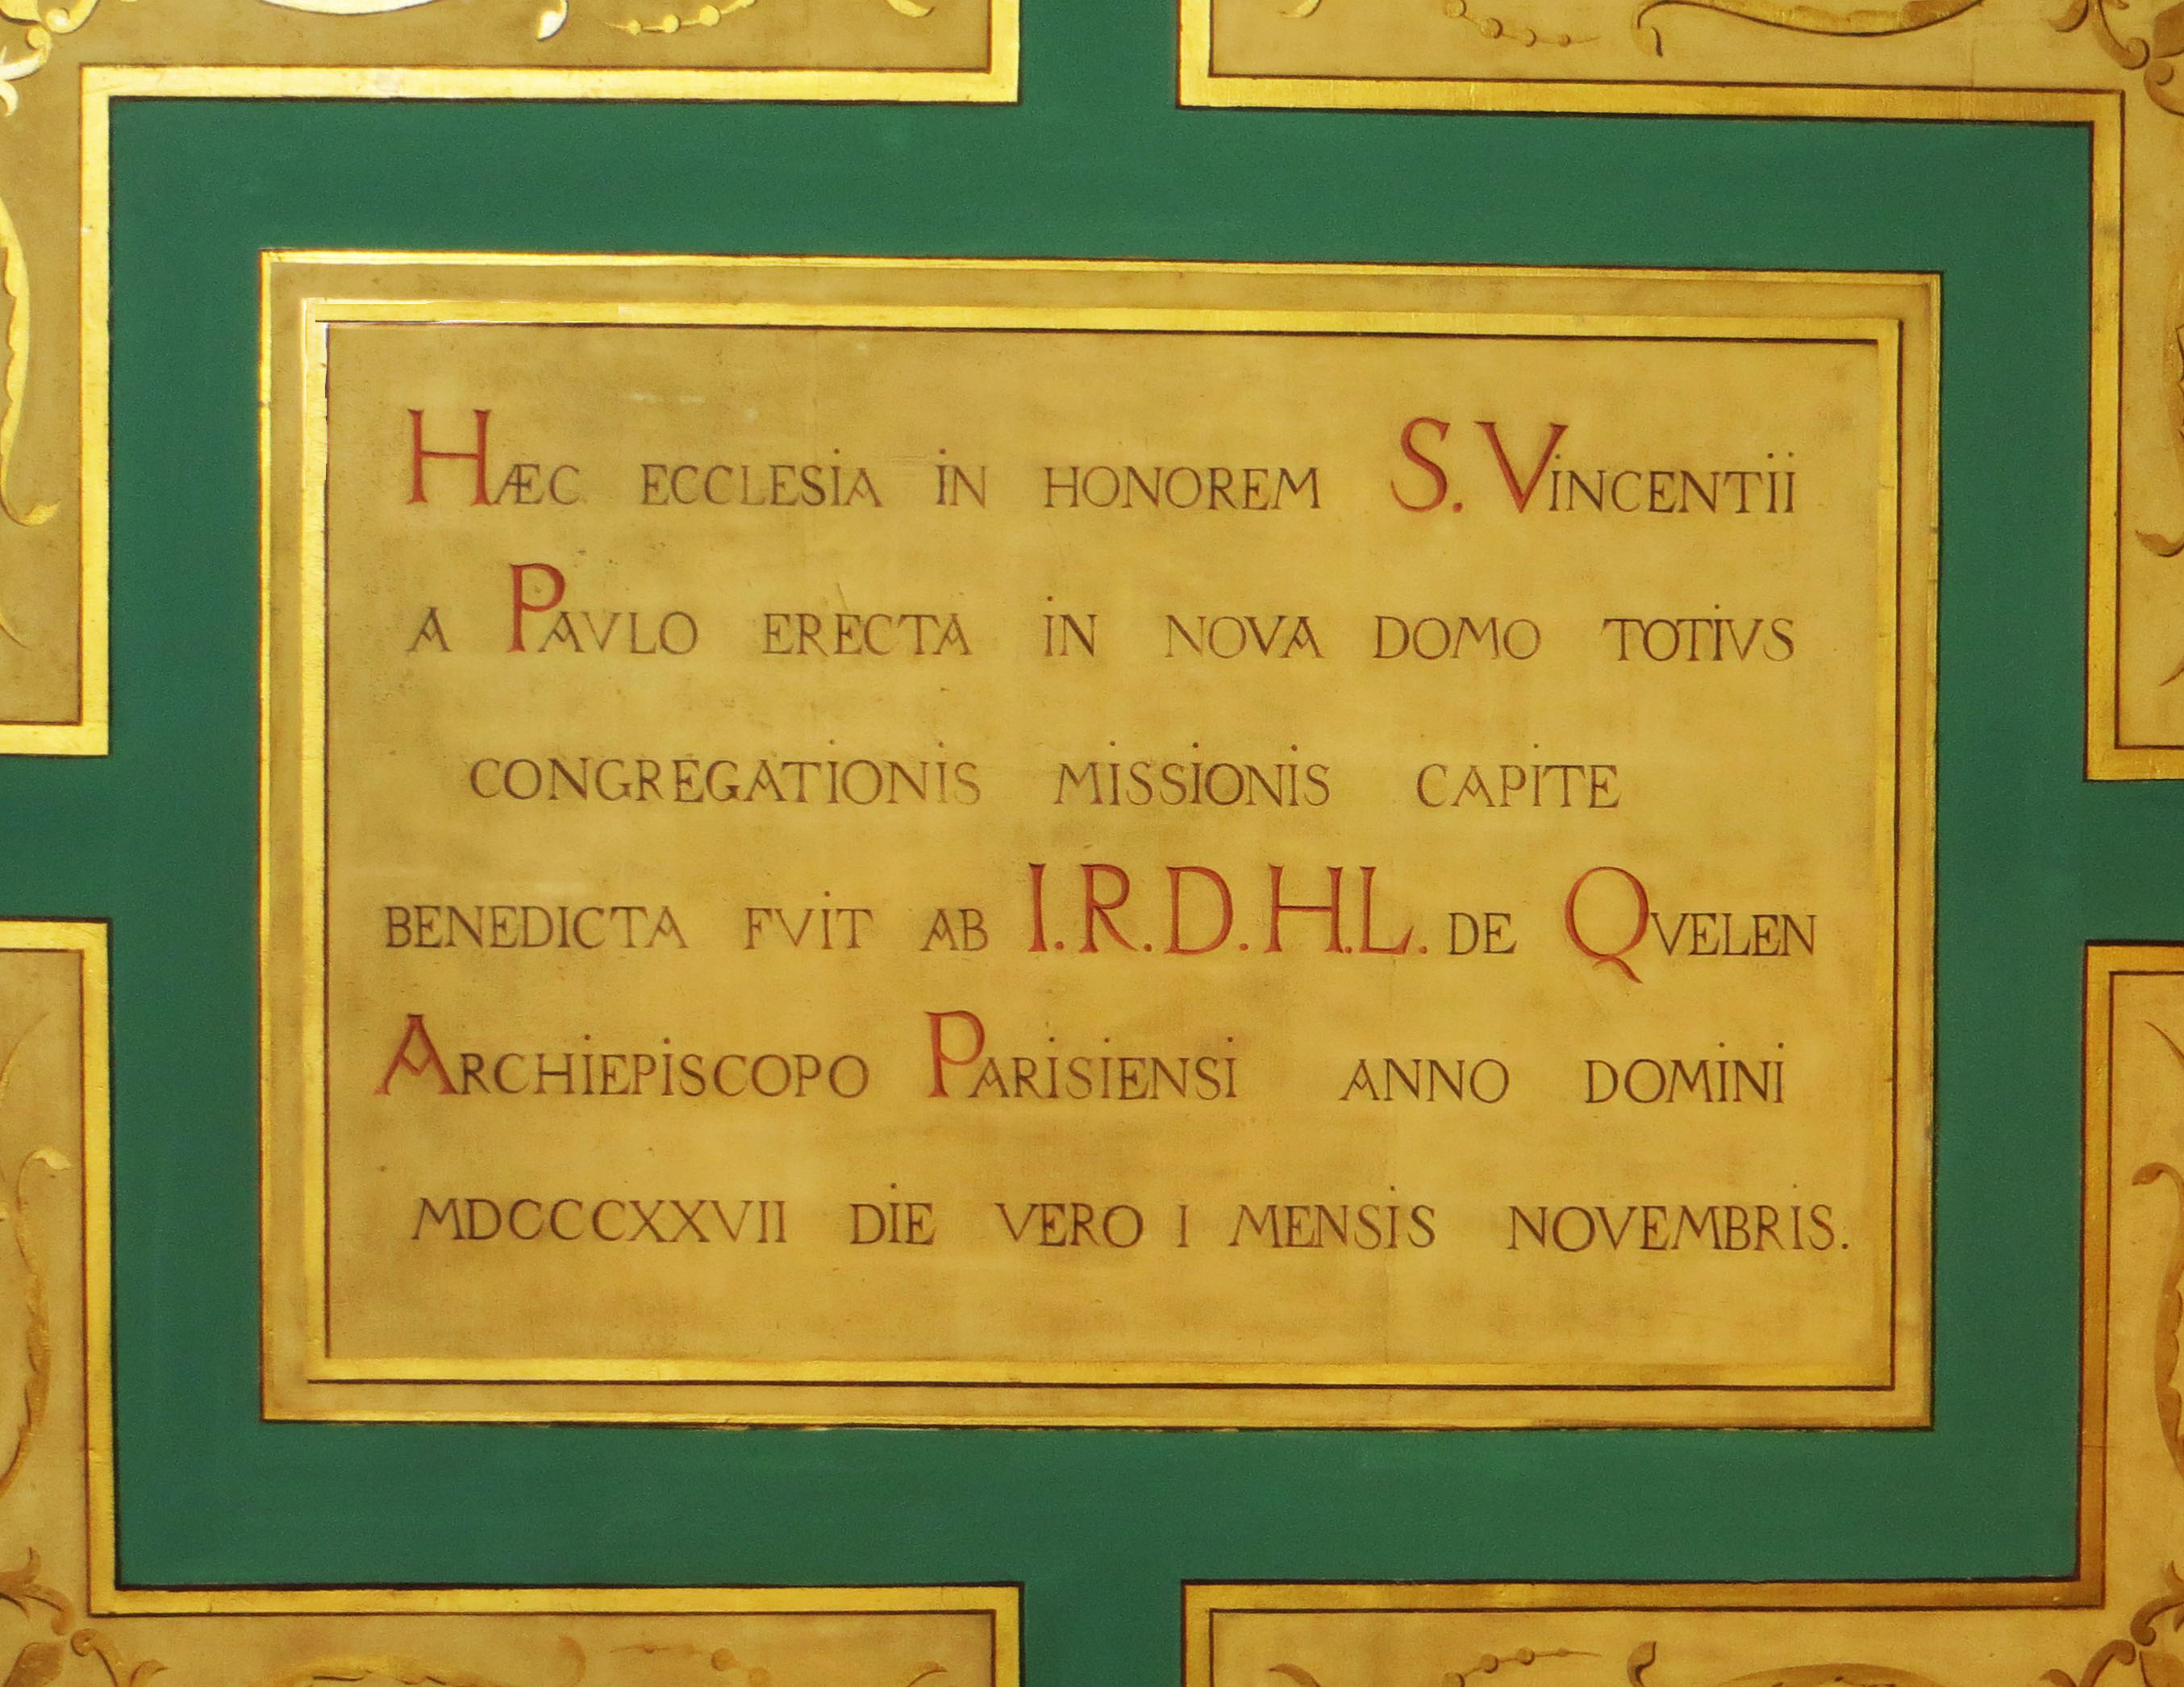 HÆC ECCLESiA iN HONOREM S. ViNCENTii
A PAVLO ERECTA iN NOVA DOMO TOTiVS
CONGREGATiONiS MiSSiONiS CAPiTE
BENEDICTA FViT AB I.R.D.H.L. DE QVELEN
ARCHiEPiSCOPO PARiSiENSi ANNO DOMiNi
MDCCCXXVII DiE VERO I MENSiS NOVEMBRiS.